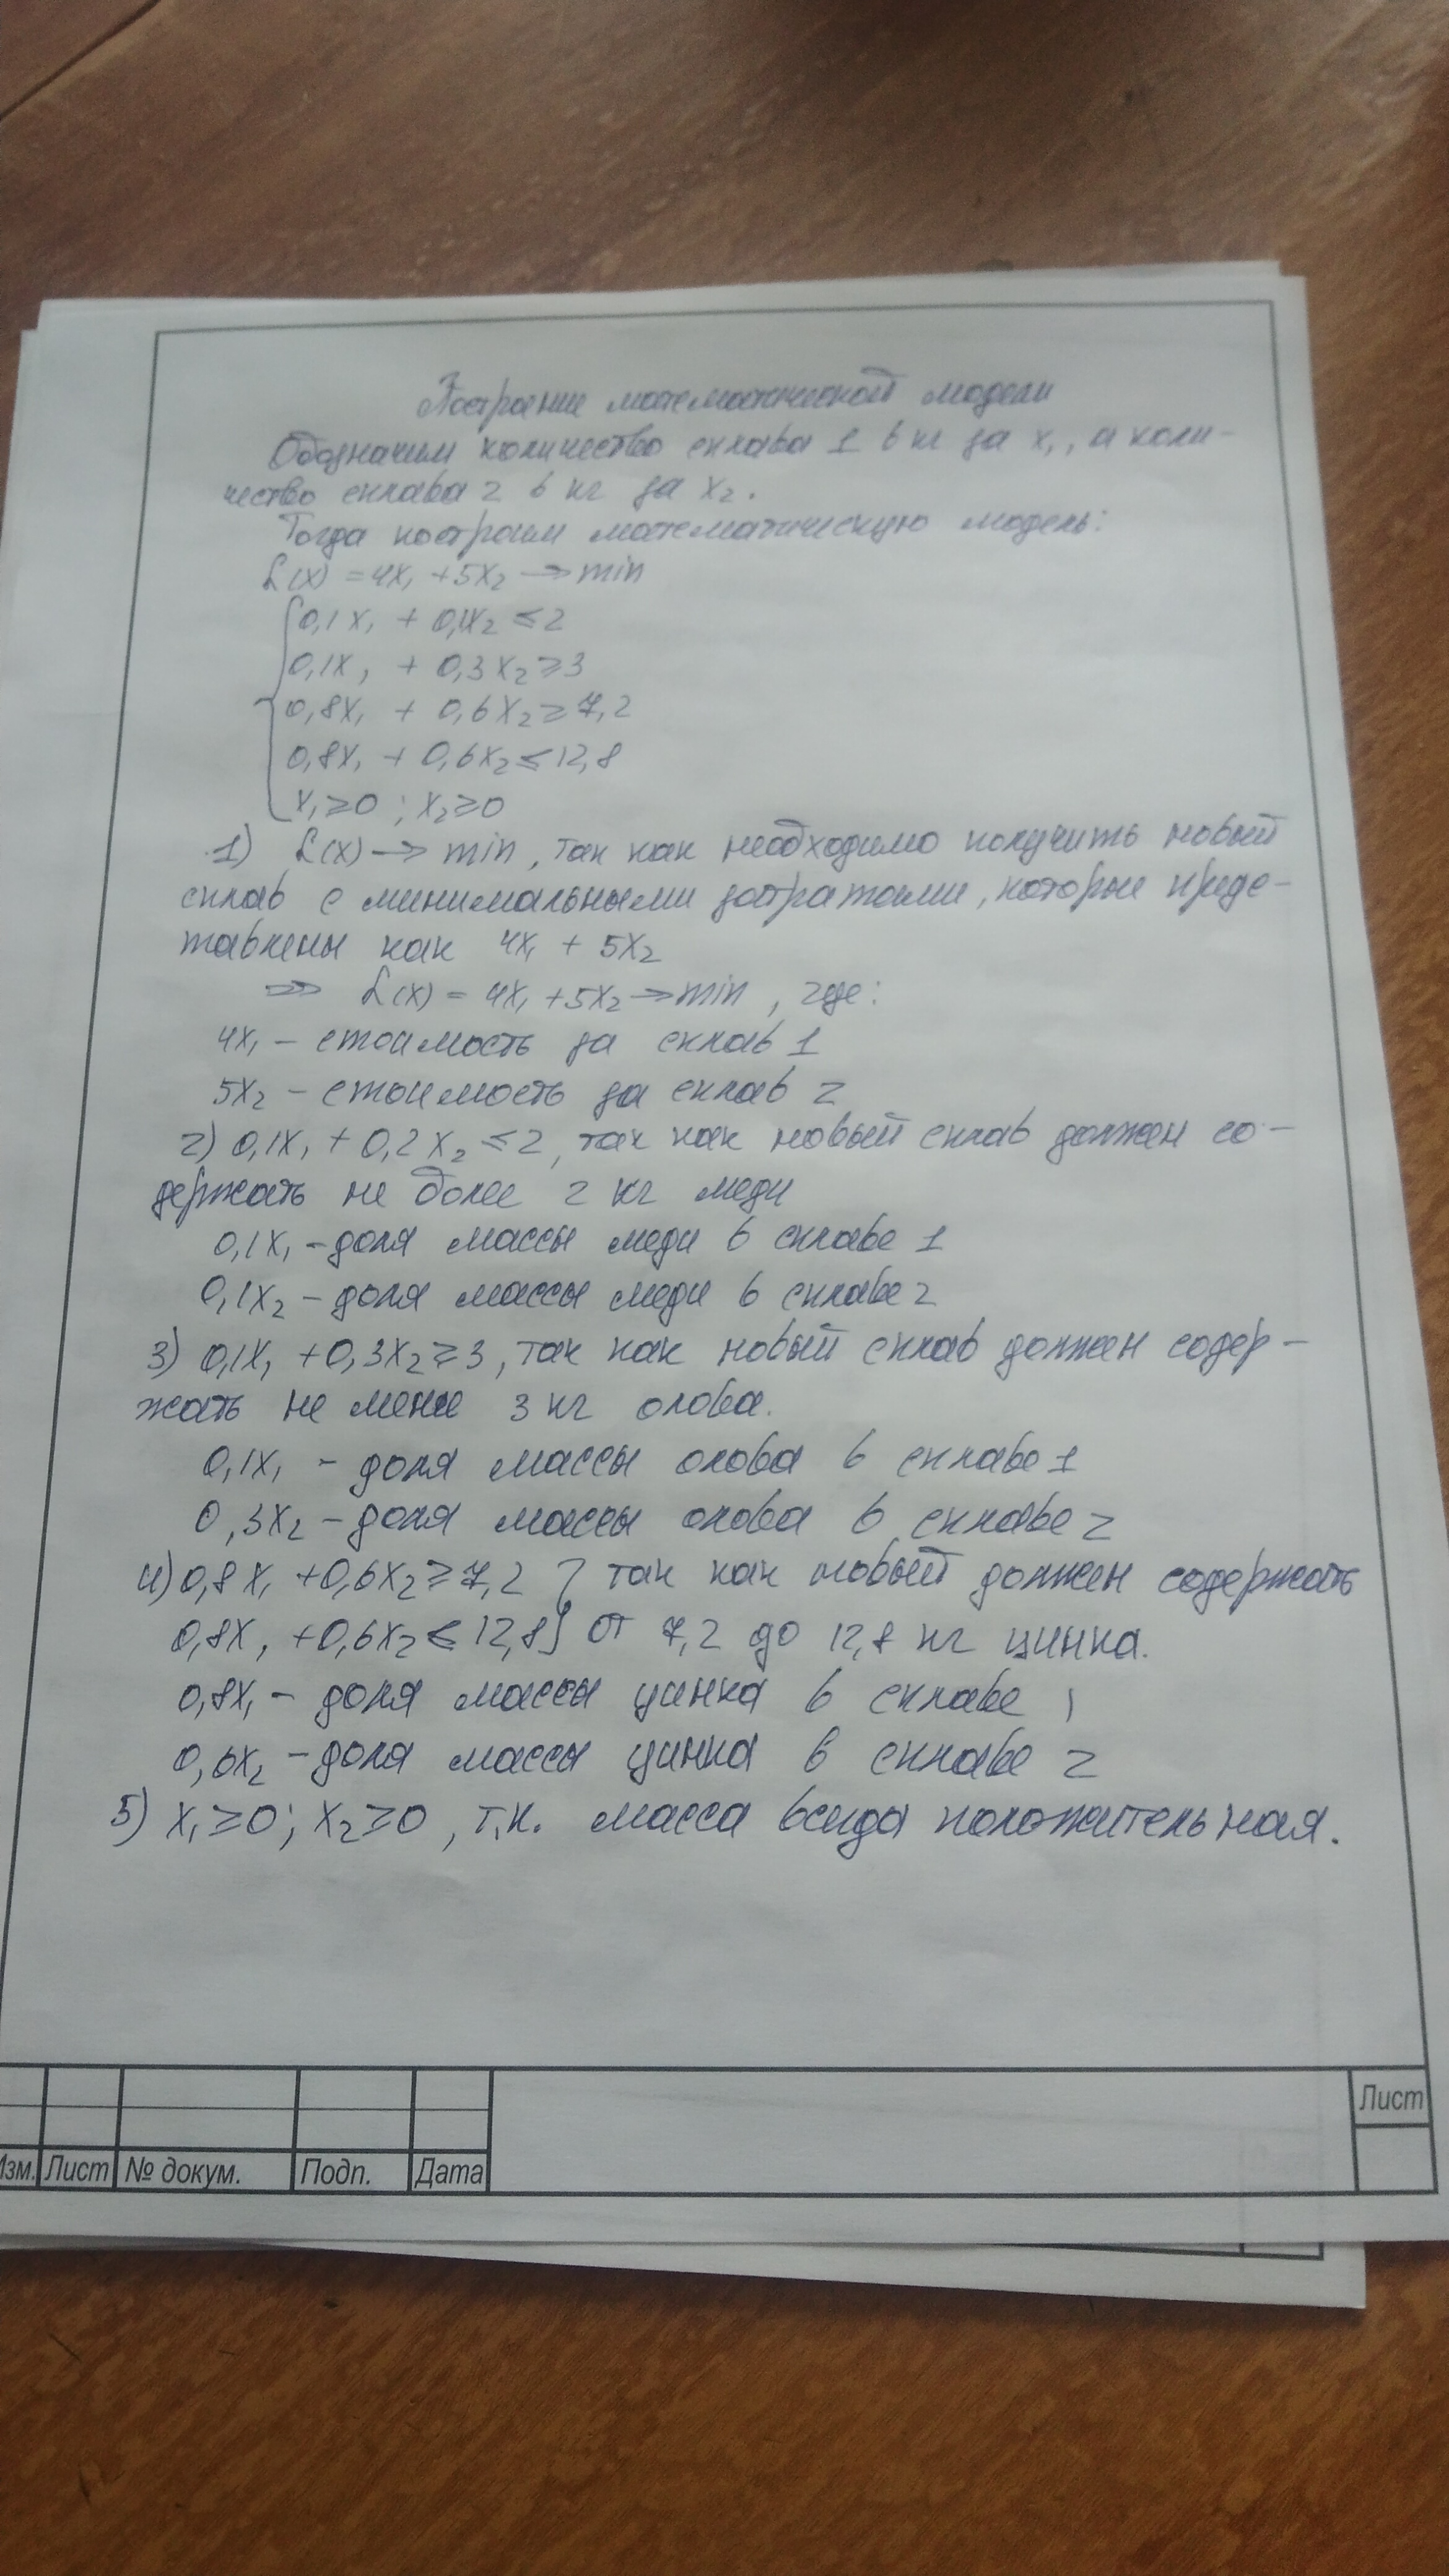 Построение математической модели
Обозначим количество сплава 1 в кг за x₁, а коли-
чество сплава 2 в кг за x₂.
Тогда построим математическую модель:
L(x) = 4x₁ + 5x₂ → min
0,1x₁ + 0,1x₂ ≤ 2
0,1x₁ + 0,3x₂ ≥ 3
0,8x₁ + 0,6x₂ ≥ 7,2
0,8x₁ + 0,6x₂ ≤ 12,8
x₁ ≥ 0 ; x₂ ≥ 0
1) L(x) → min, так как необходимо получить новый
сплав с минимальными затратами, которые предс-
тавлены как 4x₁ + 5x₂
⇒ L(x) = 4x₁ + 5x₂ → min, где:
4x₁ – стоимость за сплав 1
5x₂ – стоимость за сплав 2
2) 0,1x₁ + 0,2x₂ ≤ 2, так как новый сплав должен со-
держать не более 2 кг меди
0,1x₁ – доля массы меди в сплаве 1
0,1x₂ – доля массы меди в сплаве 2
3) 0,1x₁ + 0,3x₂ ≥ 3, так как новый сплав должен содер-
жать не менее 3 кг олова.
0,1x₁ – доля массы олова в сплаве 1
0,3x₂ – доля массы олова в сплаве 2
4) 0,8x₁ + 0,6x₂ ≥ 7,2 } так как новый должен содержать
0,8x₁ + 0,6x₂ ≤ 12,8 } от 7,2 до 12,8 кг цинка.
0,8x₁ – доля массы цинка в сплаве 1
0,6x₂ – доля массы цинка в сплаве 2
5) x₁ ≥ 0; x₂ ≥ 0, т.к. масса всегда положительная.
Лист
Изм. Лист № докум. Подп. Дата